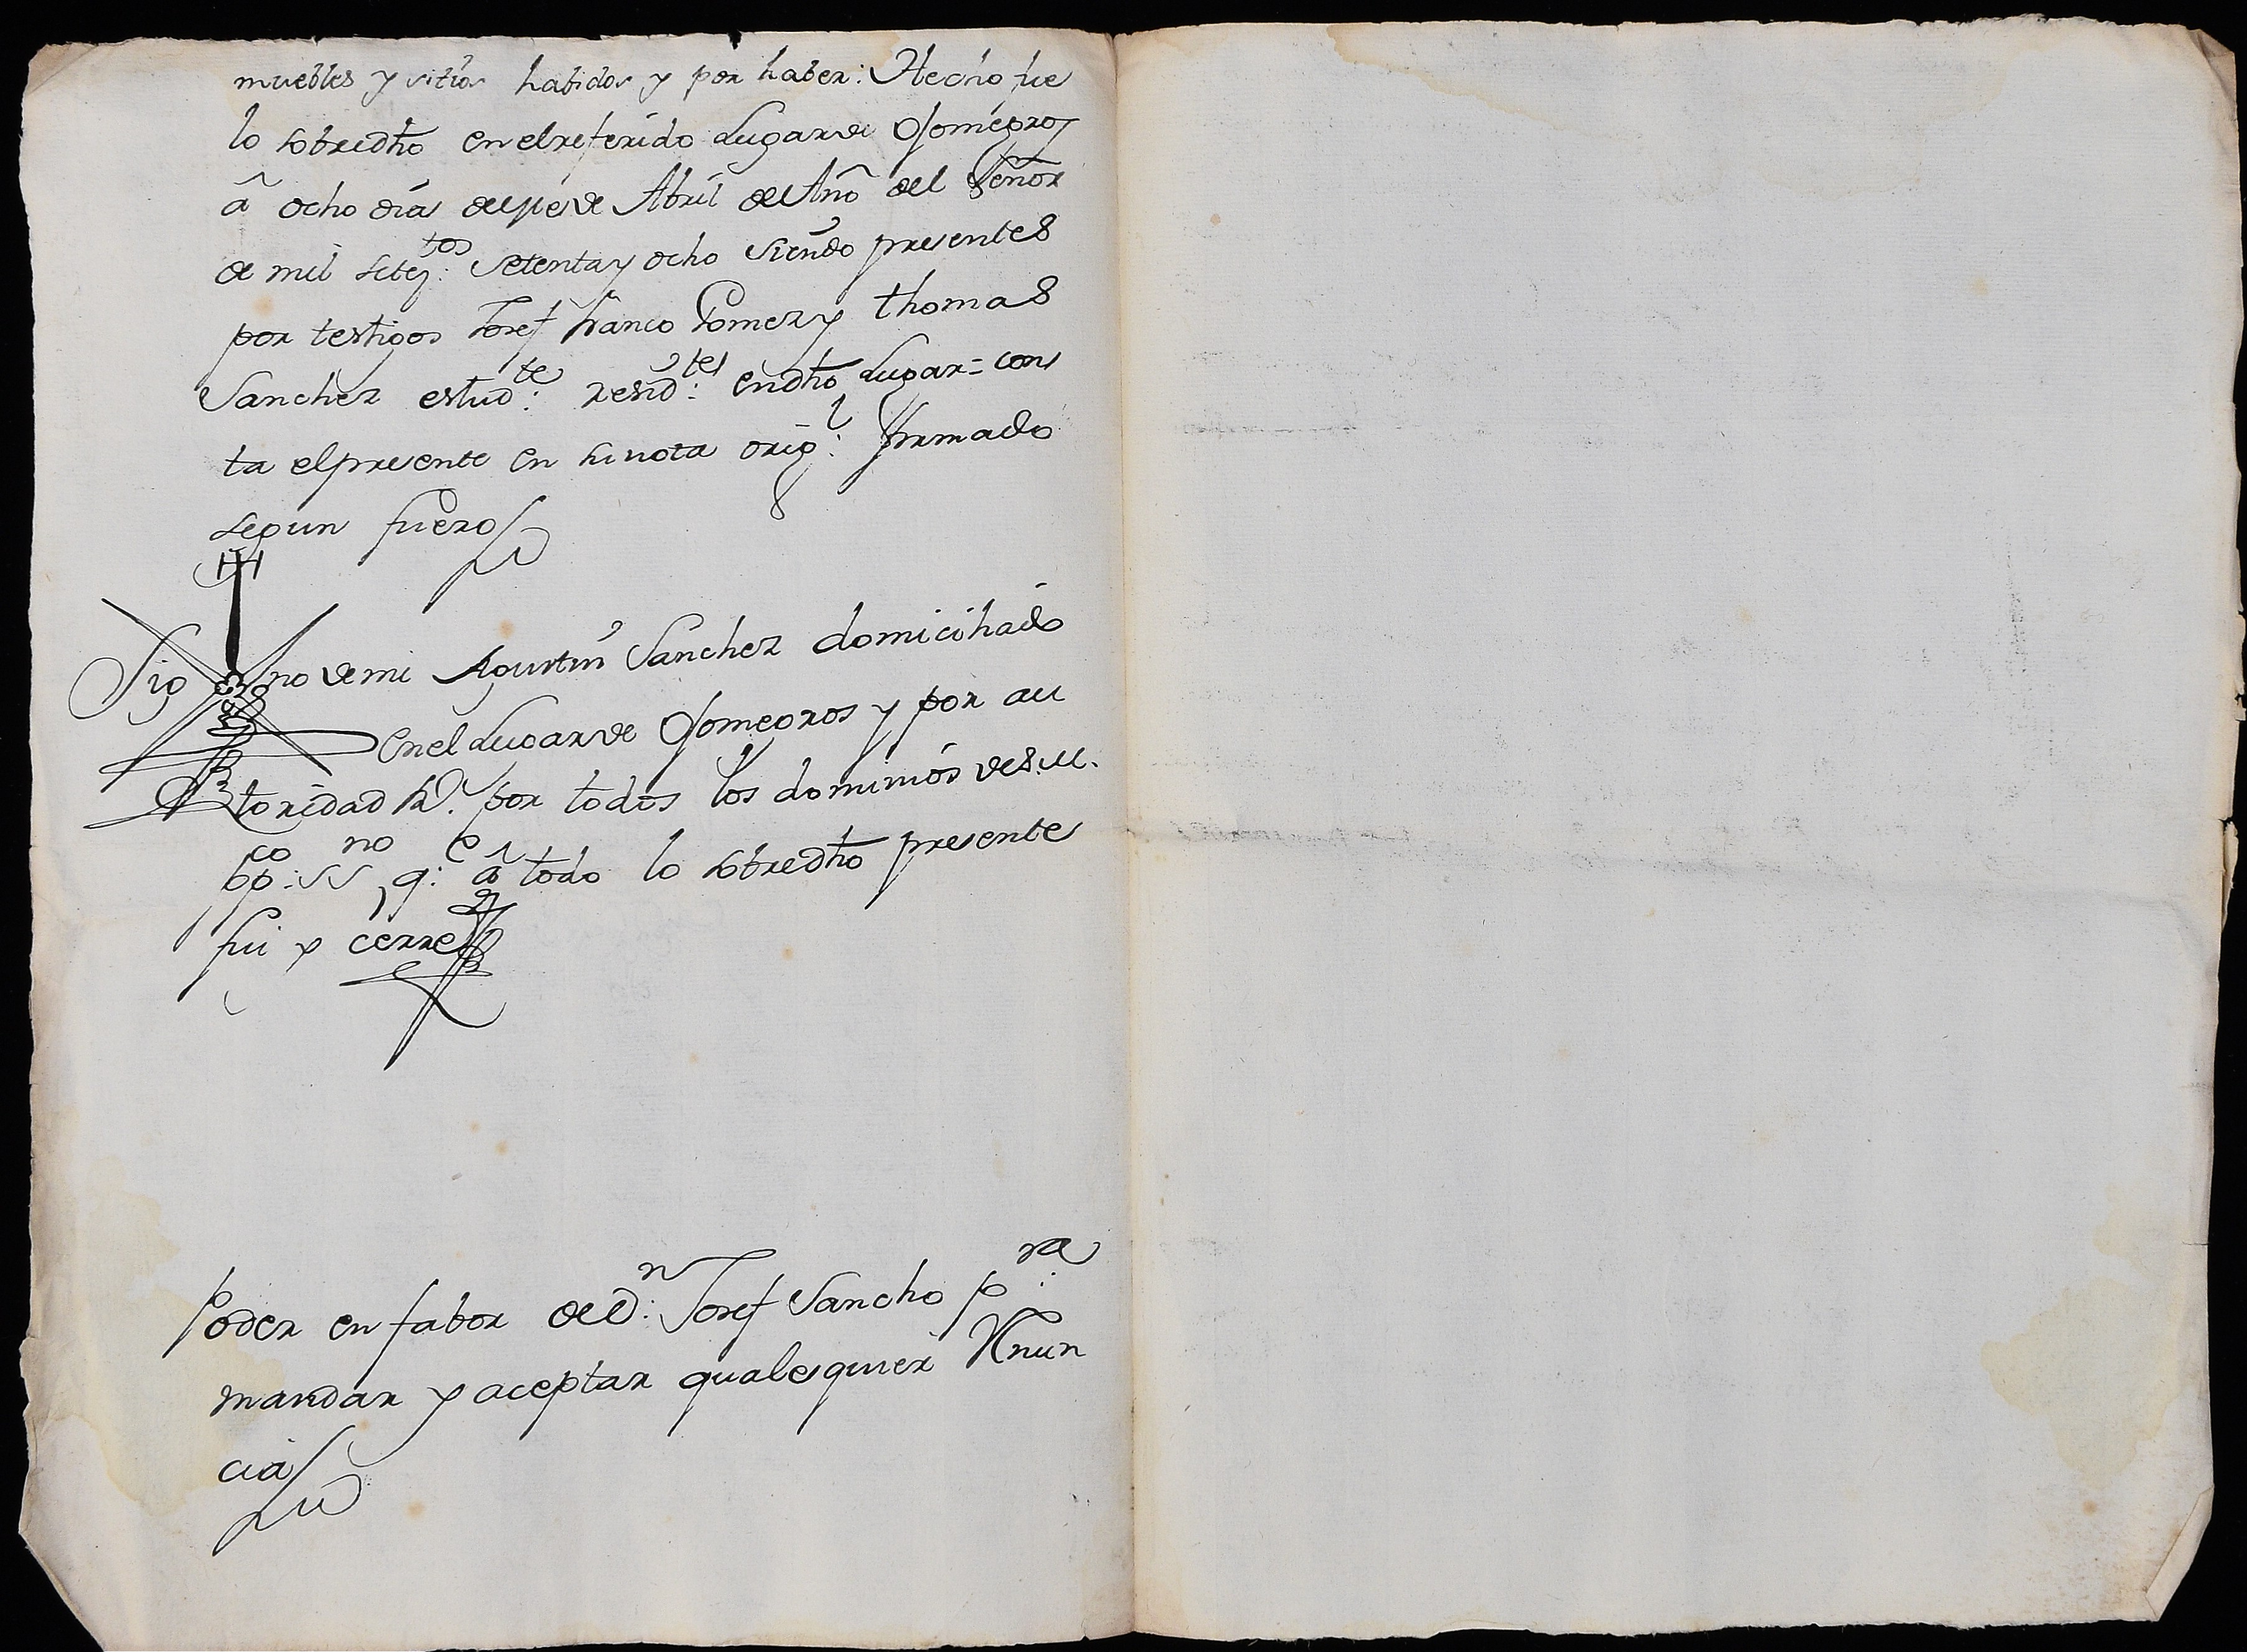 muebles y sitios habidos y por haber: Hecho fue
lo sobredho en el referido Lugar de Ojosnegros
â ocho dias del mes de Abril del Año del Señor
de mil setez:tos setenta y ocho siendo presentes
por testigos Josef franco Gomez y thomas
Sanchez estud:te resid:tes en dho Lugar = cons
ta el presente en su nota orig:l firmado
segun fuero
Sig no de mi Agustin Sanchez domiciliado
en el Lugar de Ojosnegros y por au
toridad Rl. por todos los dominios de S. M.
pp:co ss:no q:e â todo lo sobredho presente
fui y cerre
Poder en fabor de D:n Josef Sancho p:ra
mandar y aceptar qualesquier Renun
cia